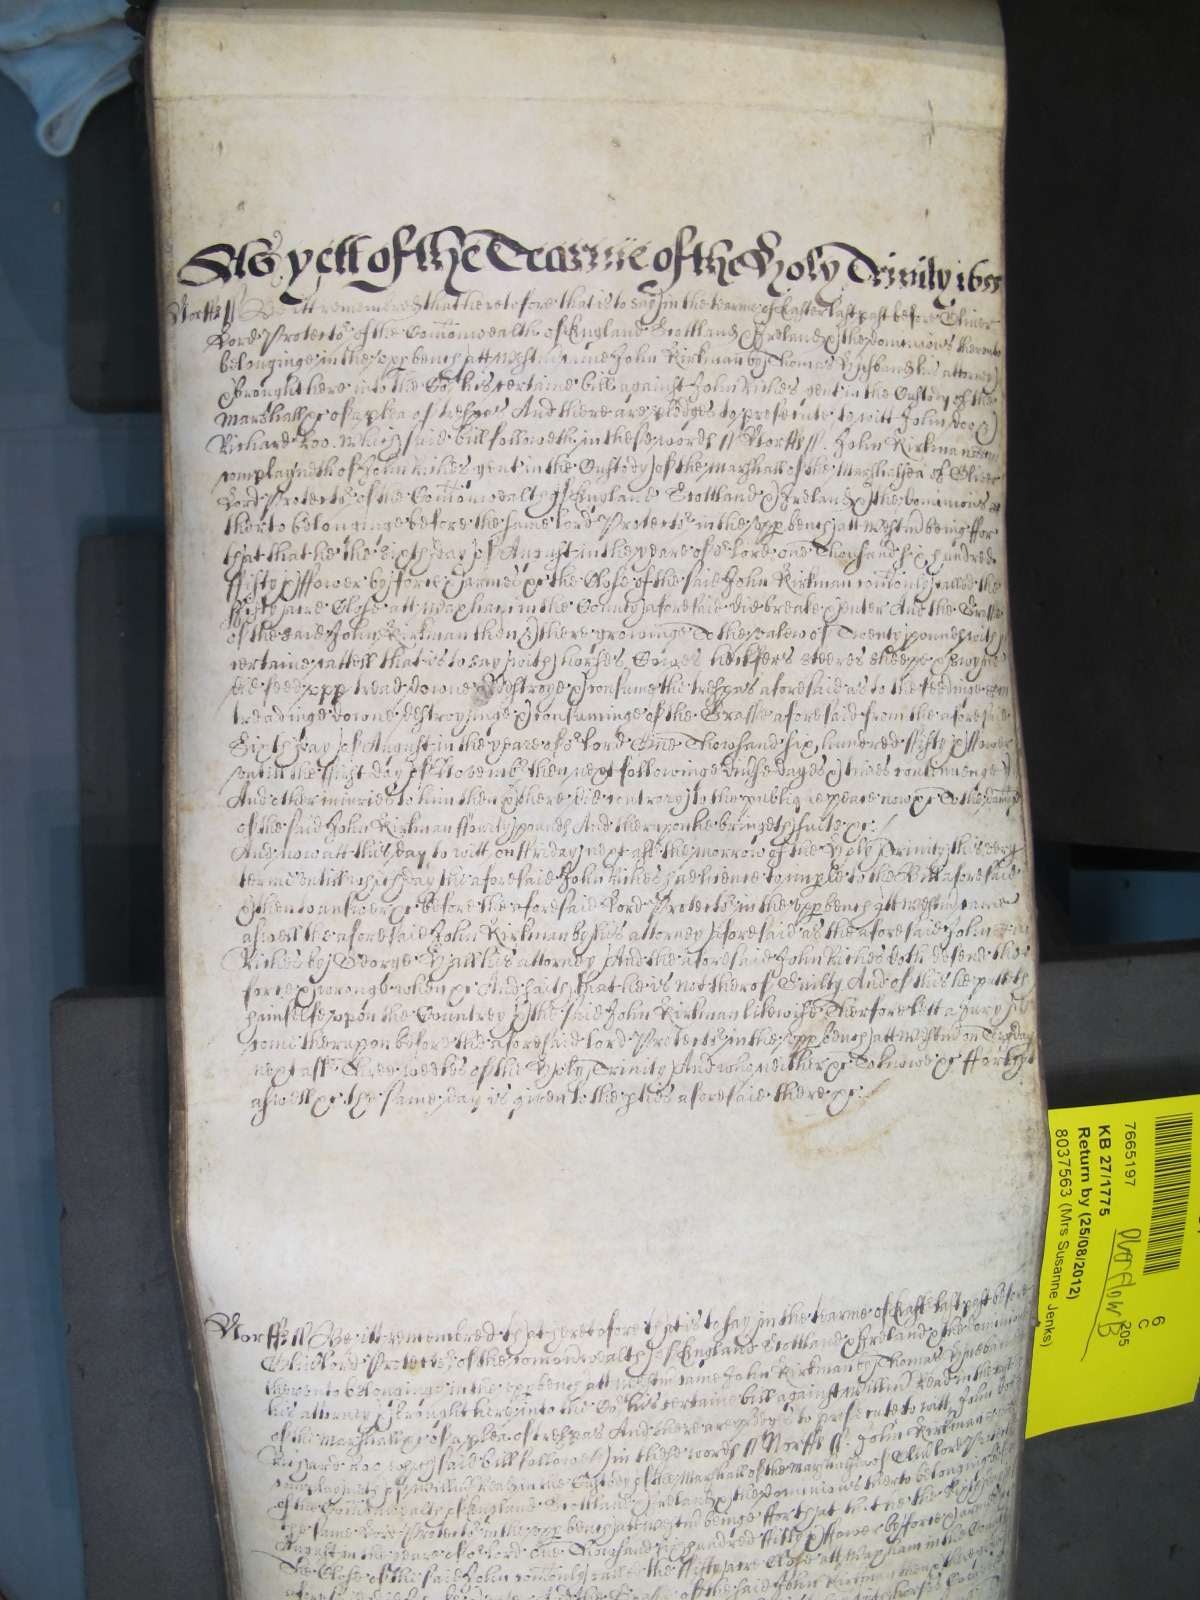 As yett of the Tearme of the Holy Trinity 1655
Norff ss Be itt remembred that heretofore that is to say in the tearme of Easter last past before Oliver
Lord Protector of the Comonwealth of England Scottland & Ireland & the dominions thereunto
belonginge in the upp bench att Westm came John Kirkman by Thomas his attorney &
brought here into the Co his certaine bill against John Riches gent in the Custody of the
Marshall &c of a plea of trespas And there are pledges to prosecute to witt John Doe &
Richard Roo. which said bill followeth in these words ss Norff ss. John Kirkman
complayneth of John Riches gent in the Custody of the Marshall of the Marshalsea of Oliver
Lord Protector of the Comonwealth of England Scottland & Ireland & the dominions
therto belonginge before the same lord Protector in the upp bench att Westm being ffor
that that he the Sixth day of August in the yeare of or Lord one Thousand six hundred
ffifty & ffower by force & armes &c the Close of the said John Kirkman comonly called the
ffifty acre Close att Waxham in the County aforesaid did breake & enter And the Grasse
of the said John Kirkman then & there growinge To the valew of Twenty pounds with
certaine cattell that is to say with horses, Cowes heckfers steeres sheepe & swyne
did feed upp tread downe destroye & consume the trespas aforesaid as to the feedinge
treadinge downe destroyinge & consuminge of the Grasse aforesaid from the aforesaid
Sixth day of August in the yeare of or Lord One Thowsand six hundred ffifty & ffower
untill the ffirst day of Novemb then next followinge divse dayes & times contenuenge
And other iniuries to him then & there did contrary to the publique peace now &c To the damage
of the said John Kirkman ffowrty pounds And therupon he bringeth suite &c.
And now att this day to witt on ffriday next aft the morrow of the Holy Trinity this very
terme untill which day the aforesaid John Riches had licence to imple to the Bill aforesaid
& then to answer &c before the aforesaid Lord Protector in the upp bench att Westm came
aswell the aforesaid John Kirkman by his attorney aforesaid as the aforesaid John
Riches by George Hall his attorney And the aforesaid John Riches doth defend the
force & wronge when &c And saith that he is not therof Guilty And of this he putteth
himselfe upon the Countrey & the said John Kirkman likewise Therfore lett a Jury
come therupon before the aforesaid lord Protector in the upp bench att Westm on Tuesday
next aft Three weekes of the Holy Trinity And who neither &c To knowe &c ffor that
aswell &c the same day is given to the pties aforesaid there &c.
Norff ss Be itt remembred that heretofore that is to say in the tearme of Easter last past before
Oliv lord Protector of the comonwealth of England Scottland & Ireland & the dominions
thereunto belonginge in the upp bench att Westm came John Kirkman by Thomas
his attorney & brought here into the Co his certaine bill against Willm Read in the
of the Marshall &c of a plea of trespas And there are pledges to prosecute to witt John Doe
Richard Roo which said bill followeth in these words ss Norff ss. John Kirkman
complayneth of Willm Read in the Custody of the Marshall of the Marshalsea of Oliv lord
of the Comonwealth of England Scottland & Ireland & the dominions therto belonginge
the same Lord Protector in the upp bench att Westm beinge ffor that that he the Sixth
August in the yeare of or Lord One Thowsand six hundred ffifty & ffower by force & armes
the Close of the said John comonly called the ffifty acre Close att Waxham in the County
of the said John Kirkman then & there
7665197
KB 27/1775
Return by (25/08/2012)
8037563 (Mrs Susanne Jenks)
Overflow B
6
C
205